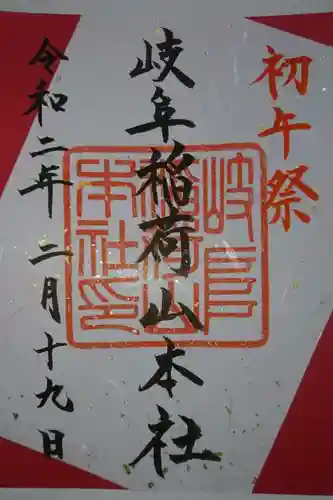 初午祭
岐阜稲荷山本社
岐阜稲荷山本社印
令和二年二月十九日